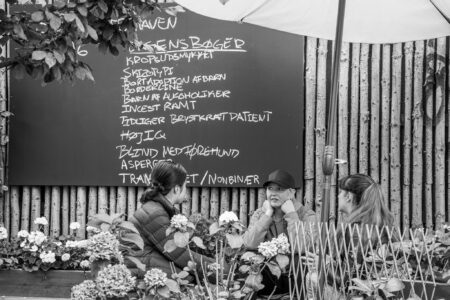 HAVEN
GENS BØGER
KROPSUDSMYKKET
SKIZOTYPI
BORTADOPTION AF BARN
BORDERLINE
BARN AF ALKOHOLIKER
INCEST RAMT
TIDLIGER BRYSTKRÆFT PATIENT
HØJ IQ
BLIND MED FØREHUND
ASPERGE
/NONBINÆR